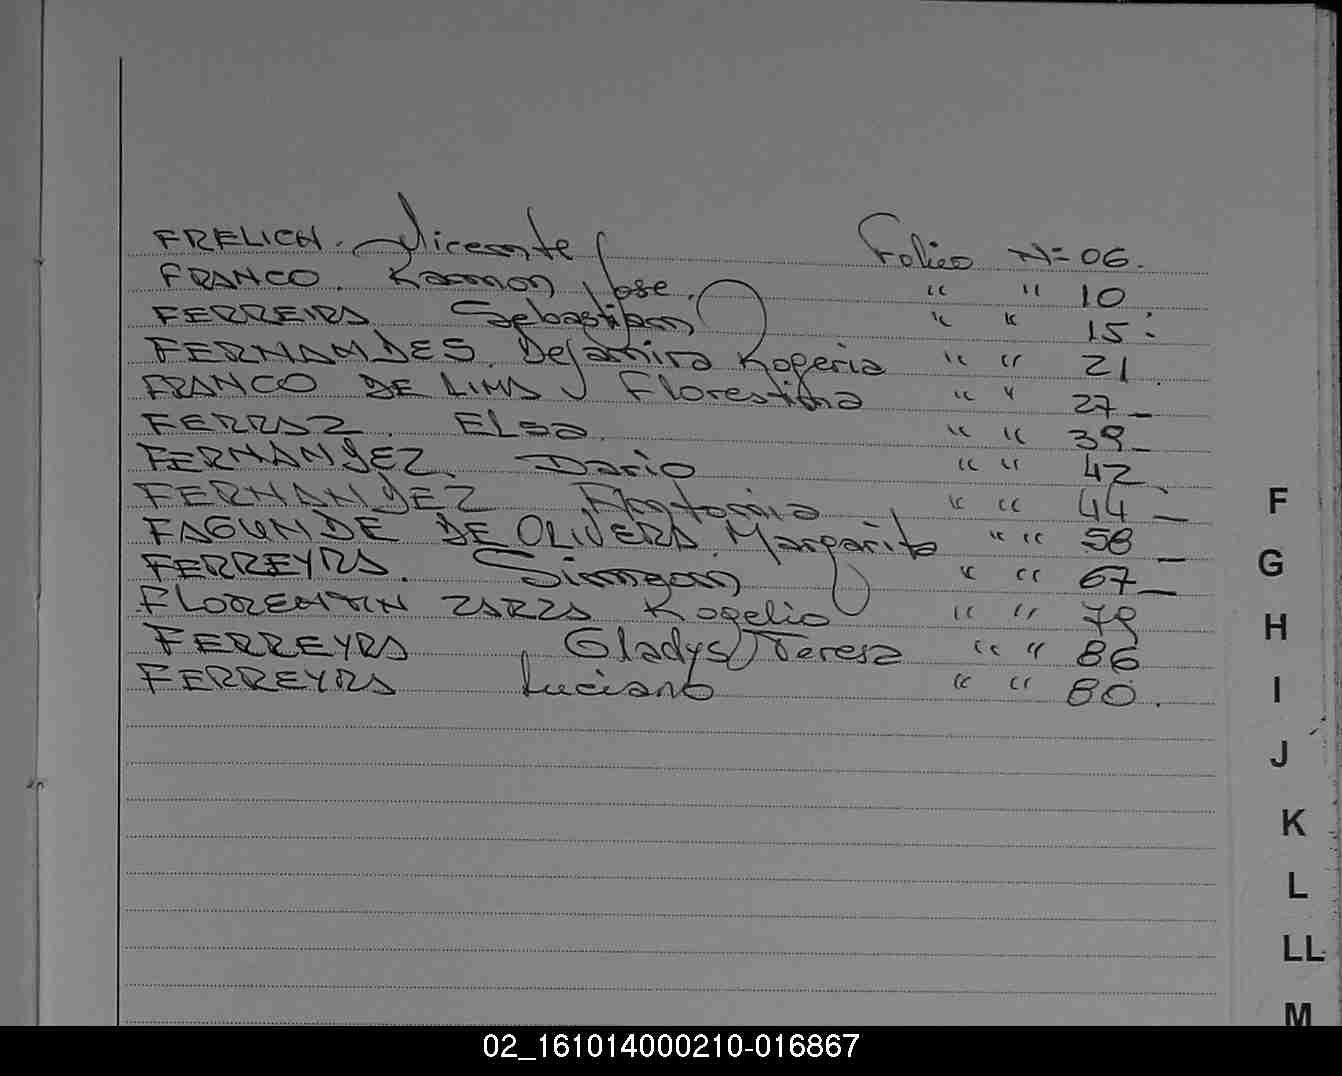 FRELICH. Vicente Folio Nº 06.
FRANCO. Ramon Jose. " " 10
FERREIRA Sebastian " " 15
FERNANDES. Dejanira Rogeria " " 21
FRANCO DE LIMA Florestina " " 27
FERRAZ. Elsa. " " 39
FERNANDEZ. Dario " " 42
FERNANDEZ Antonia " " 44
FAGUNDE DE OLIVERA. Margarita " " 58
FERREYRA. Simeon " " 67
FLORENTIN ZARZA Rogelio " " 79
FERREYRA Gladys Teresa " " 86
FERREYRA Luciano " " 80.
F
G
H
I
J
K
L
LL
M
02_161014000210-016867